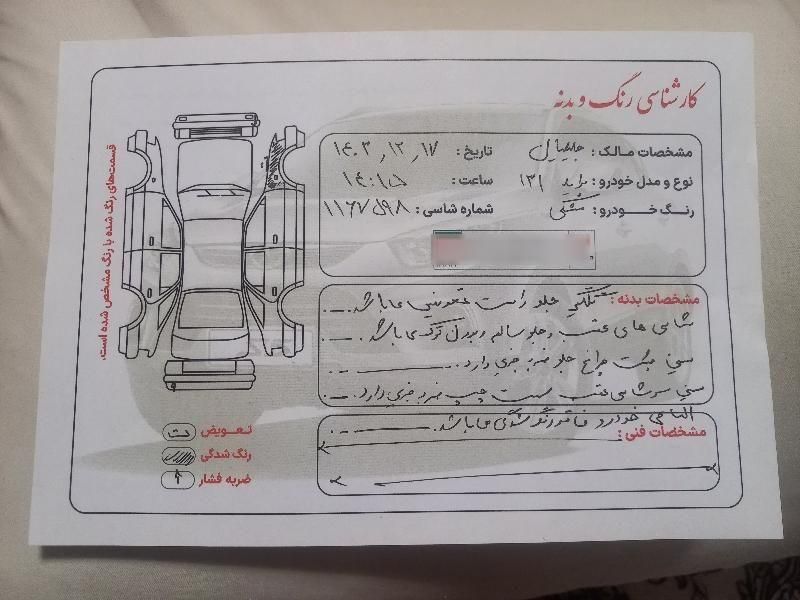 کارشناسی رنگ و بدنه
مشخصات مالک :
تاریخ : ۱۴۰۳,۱۲,۱۷
نوع و مدل خودرو : پراید ۱۳۱
ساعت :
رنگ خودرو : مشکی
شماره شاسی :
مشخصات بدنه : گلگیر جلو راست تعویض میباشد.
شاسی های عقب و جلو سالم و بدون ترک میباشد.
سینی پشت چراغ جلو ضربه جزئی دارد.
سینی سرشاسی عقب سمت چپ ضربه جزئی دارد.
الباقی خودرو فاقد رنگ شدگی میباشد.
مشخصات فنی :
قسمت‌های رنگ شده با رنگ مشخص شده است.
تعویض ت
رنگ شدگی
ضربه فشار